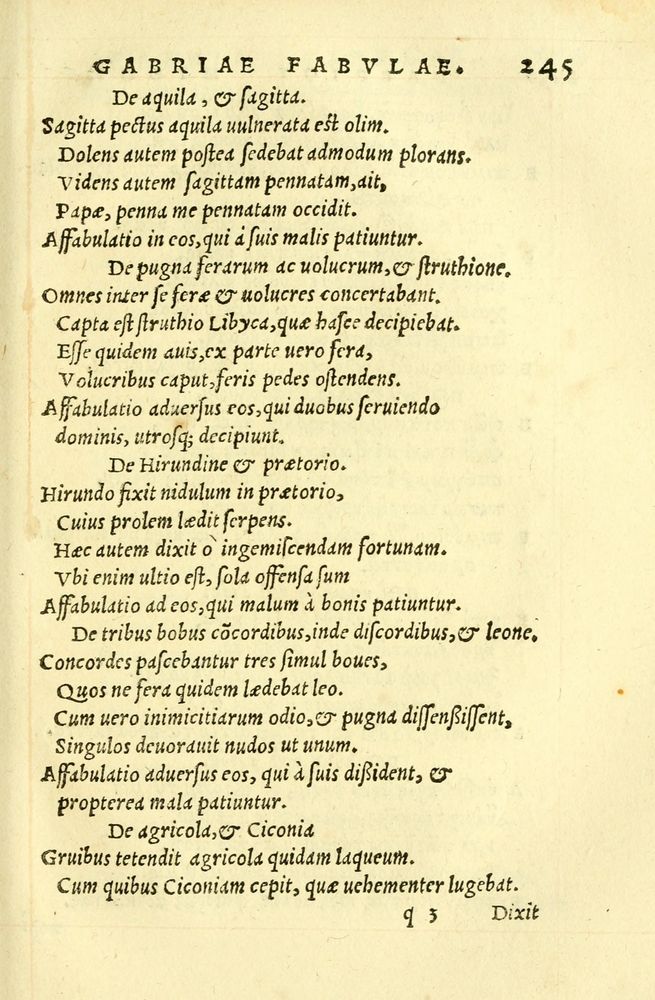 GABRIAE FABVLAE. 245
De aquila, & sagitta.
Sagitta pectus aquila uulnerata est olim.
Dolens autem postea sedebat admodum plorans.
Videns autem sagittam pennatam, ait,
Papæ, penna me pennatam occidit.
Affabulatio in eos, qui à suis malis patiuntur.
De pugna ferarum ac uolucrum, & struthione.
Omnes inter se feræ & uolucres concertabant.
Capta est struthio Libyca, quæ hasce decipiebat.
Esse quidem auis, ex parte uero fera,
Volucribus caput, feris pedes ostendens.
Affabulatio aduersus eos, qui duobus seruiendo
dominis, utrosq; decipiunt.
De Hirundine & prætorio.
Hirundo fixit nidulum in prætorio,
Cuius prolem lædit serpens.
Hæc autem dixit ò ingemiscendam fortunam.
Vbi enim ultio est, sola offensa sum
Affabulatio ad eos, qui malum à bonis patiuntur.
De tribus bobus cõcordibus, inde discordibus, & leone.
Concordes pascebantur tres simul boues,
Quos ne fera quidem lædebat leo.
Cum uero inimicitiarum odio, & pugna dissenßissent,
Singulos deuorauit nudos ut unum.
Affabulatio aduersus eos, qui à suis dißident, &
propterea mala patiuntur.
De agricola, & Ciconia
Gruibus tetendit agricola quidam laqueum.
Cum quibus Ciconiam cepit, quæ uehementer lugebat.
q 3 Dixit